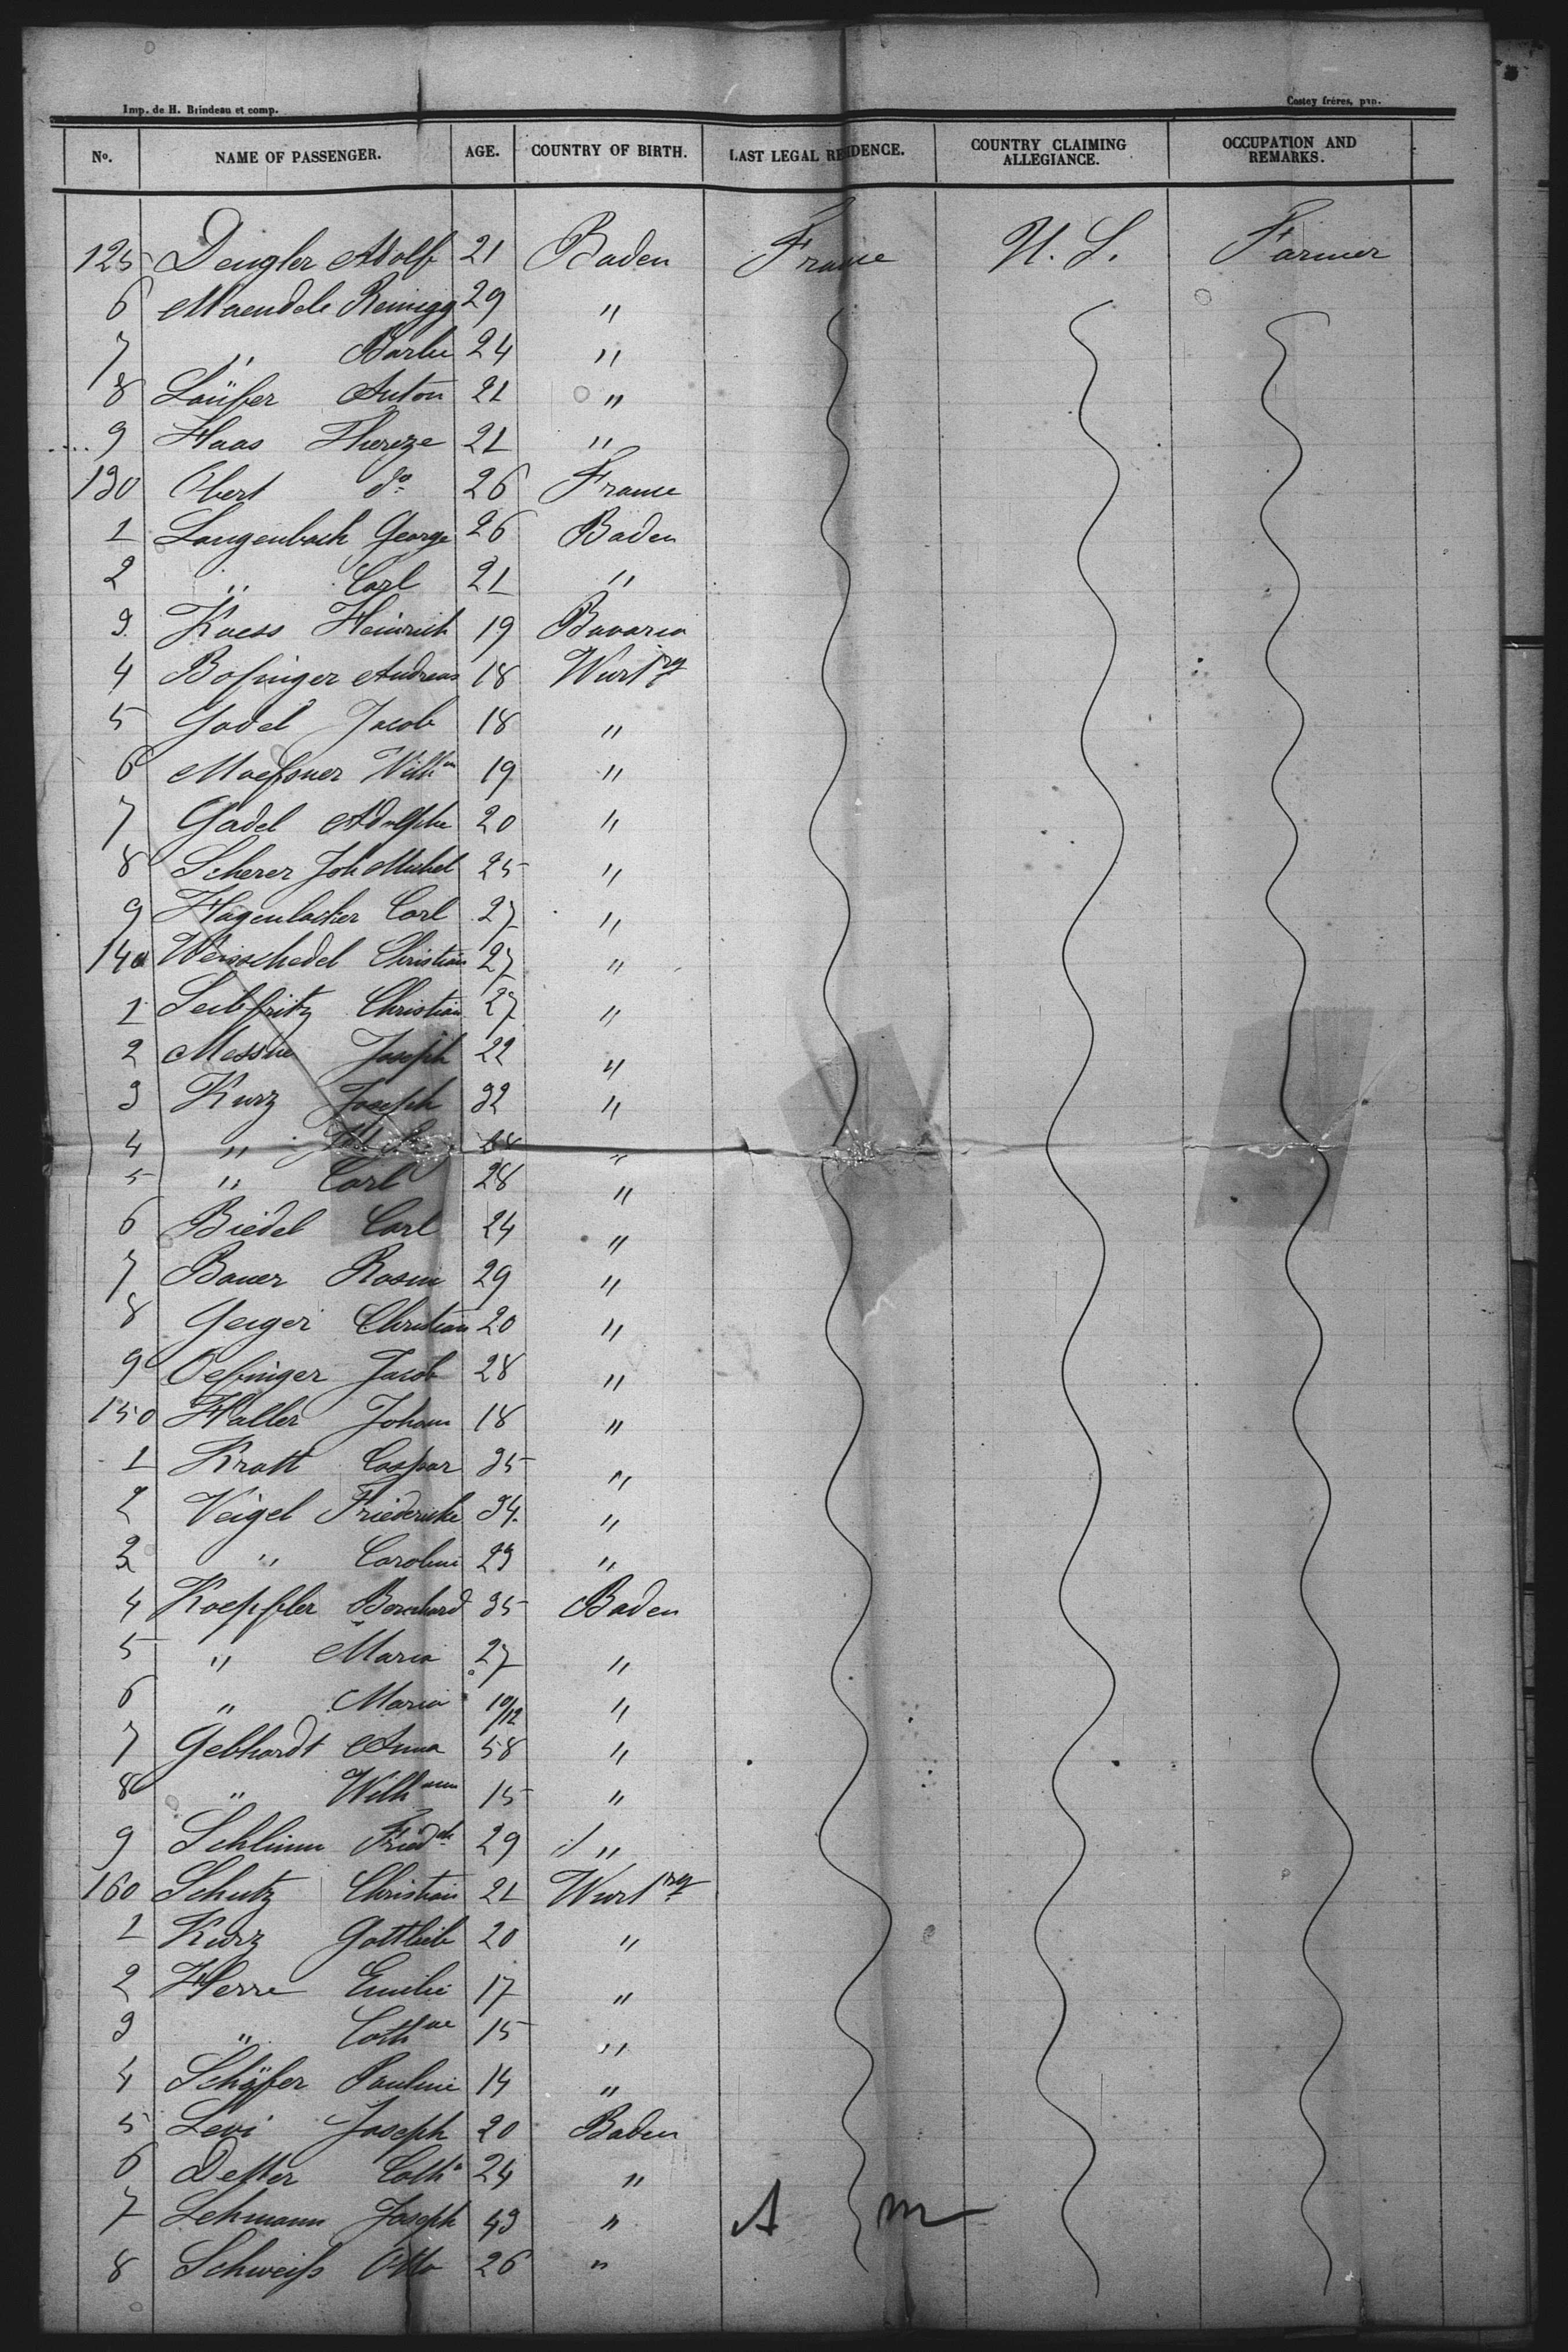 Imp. de H. Brindeau et comp. Costey frères, pap.
No. NAME OF PASSENGER. AGE. COUNTRY OF BIRTH. LAST LEGAL RESIDENCE. COUNTRY CLAIMING ALLEGIANCE. OCCUPATION AND REMARKS.
125 Dengler Adolf 21 Baden France U. S. Farmer
6 Maendele Remigg 29 "
7 " 24 "
8 Läufer Anton 21 "
9 Haas Therese 21 "
130 Obert do 26 France
1 Langenbach George 26 Baden
2 " Carl 21 "
3 Kaess Heinrich 19 Bavaria
4 Bofinger Andreas 18 Wurtbrg
5 Godel Jacob 18 "
6 Maessner Wilhm 19 "
7 Gadel Adolphe 20 "
8 Scherer Joh Michel 25 "
9 Hagenlocher Carl 27 "
140 Weisschedel Christian 27 "
1 Seibfritz Christian 27 "
2 Messne Joseph 22 "
3 Kurz Joseph 32 "
4 " "
5 " Carl 28 "
6 Biedel Carl 24 "
7 Bauer Rosin 29 "
8 Geiger Christian 20 "
9 Oefinger Jacob 28 "
150 Haller Johann 18 "
1 Kratt Caspar 35 "
2 Veigel Friedericke 34 "
3 " Carolin 23 "
4 Koepfler Borchard 35 Baden
5 " Maria 27 "
6 " Maria 10/12 "
7 Gebhardt Anna 58 "
8 " Wilhmin 15 "
9 Schlimm Friedch 29 "
160 Schutz Christian 21 Wurtbrg
1 Kurz Gottlieb 20 "
2 Herre Emilie 17 "
3 " Cathne 15 "
4 Schäfer Pauline 14 "
5 Levi Joseph 20 Baden
6 Detter Catha 24 "
7 Lehmann Joseph 43 " A m
8 Schweiss Otto 26 "